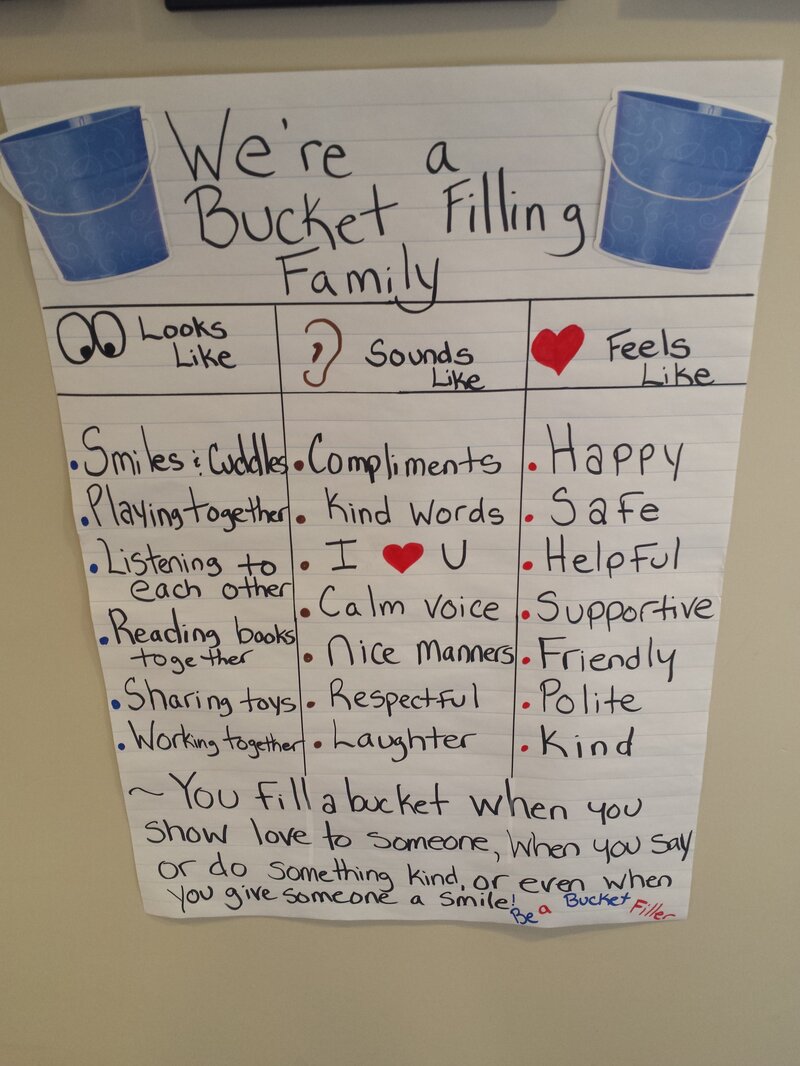 We're a
Bucket Filling
Family
Looks
Like
Smiles & Cuddles
Playing together
Listening to
each other
Reading books
together
Sharing toys
Working together
Sounds
Like
Compliments
Kind words
I ❤ U
Calm voice
Nice manners
Respectful
Laughter
Feels
Like
Happy
Safe
Helpful
Supportive
Friendly
Polite
Kind
~ You fill a bucket when you
show love to someone, when you say
or do something kind, or even when
you give someone a smile!
Be a Bucket Filler